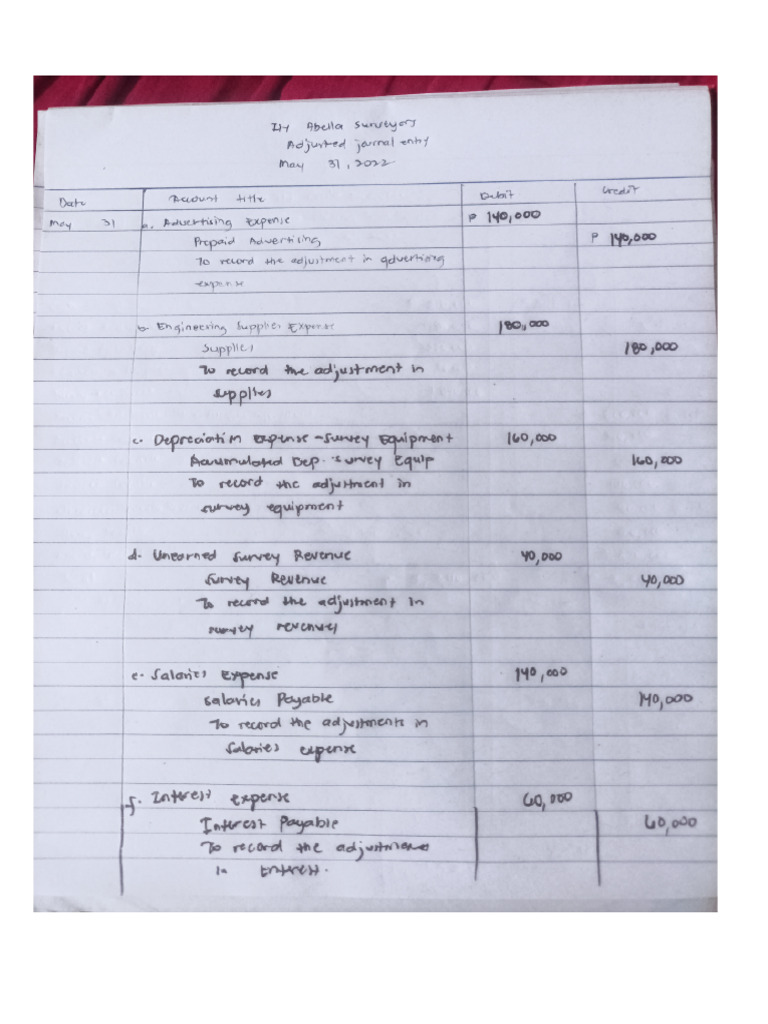 Abella Surveyors
Adjusted journal entry
May 31, 2022
Date Account title Debit Credit
May 31 a. Advertising Expense ₱ 140,000
Prepaid Advertising ₱ 140,000
To record the adjustment in advertising
expense
b- Engineering Supplies Expense 180,000
Supplies 180,000
To record the adjustment in
supplies
c. Depreciation expense -Survey Equipment 160,000
Accumulated Dep. Survey Equip 160,000
To record the adjustment in
survey equipment
d. Unearned survey Revenue 40,000
Survey Revenue 40,000
To record the adjustment in
survey revenues
e. Salaries Expense 140,000
Salaries Payable 140,000
To record the adjustments in
salaries expense
f. Interest expense 60,000
Interest Payable 60,000
To record the adjustments
in Interest.